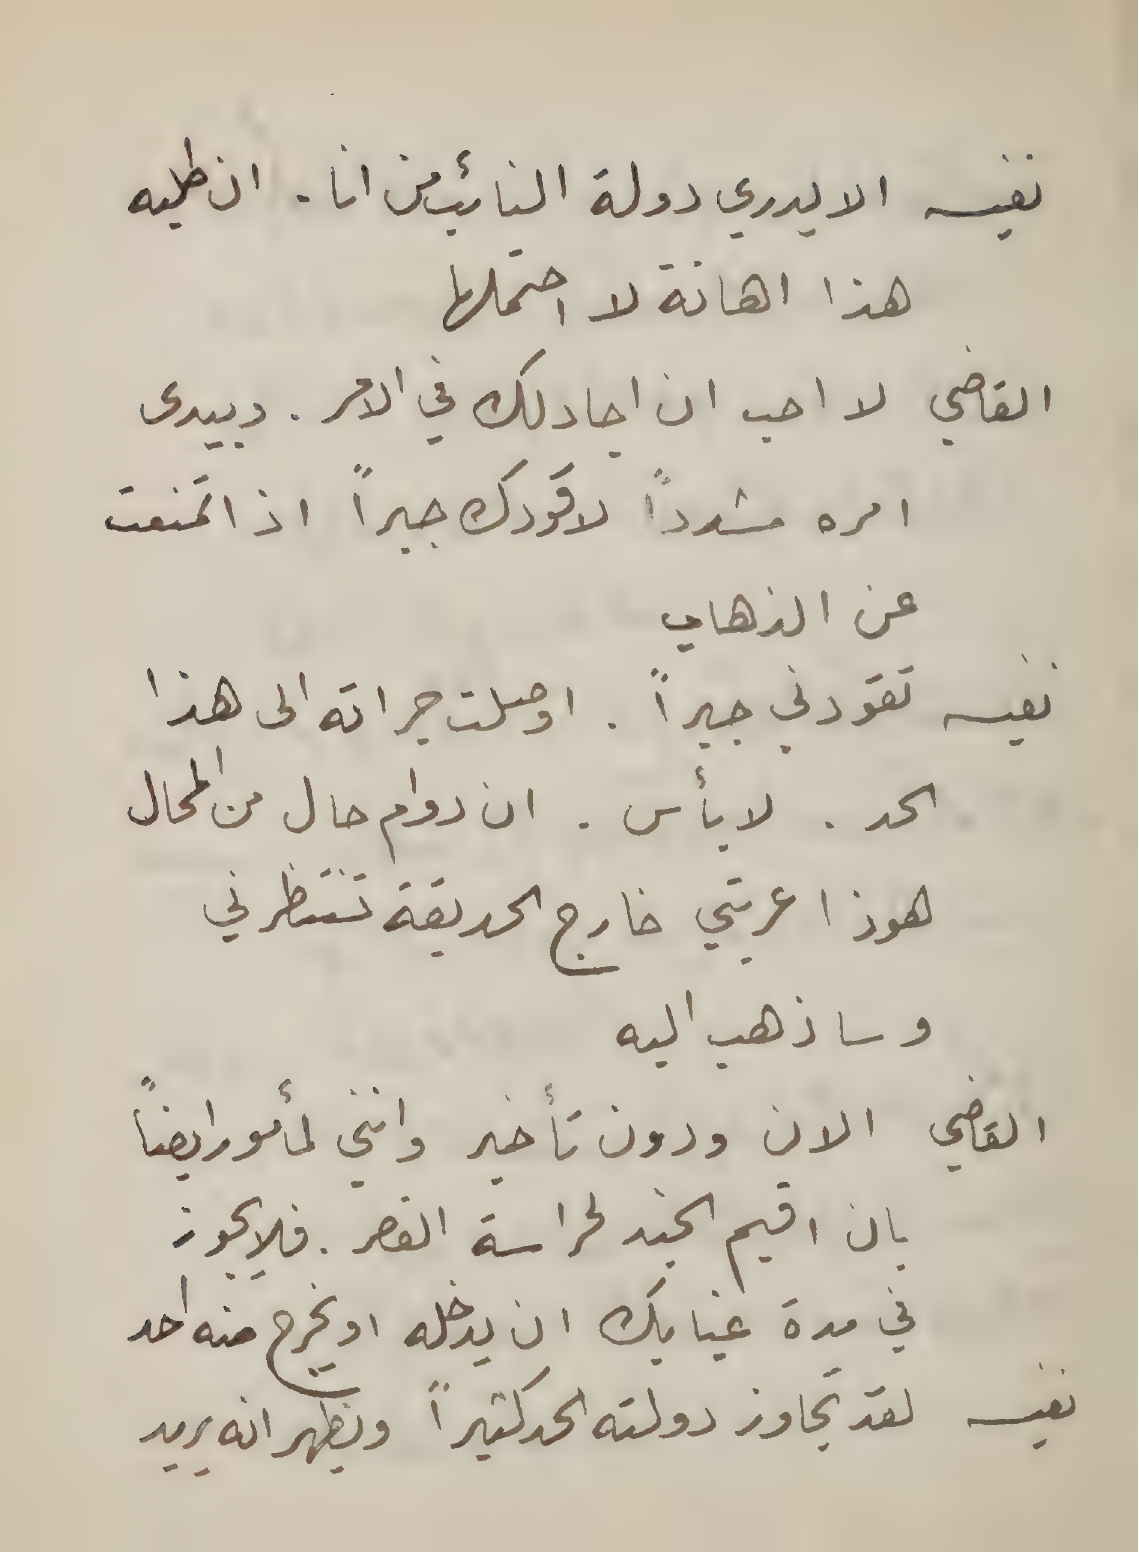 نفيسه الا يدري دولة النائب من انا . ان طلبه
هذا اهانة لا احتملها
القاضي لا احب ان اجادلك في الامر . وبيدى
امره مشدداً لاقودك جبراً اذا تمنعت
عن الذهاب
نفيسه تقودني جبراً . اوصلت جراته الى هذا
الحد . لا بأس . ان دوام حال من المحال
هوذا عربتي خارج الحديقة تنتظرني
وساذهب اليه
القاضي الان ودون تأخير وانني لمأمور ايضاً
بان اقيم الجند لحراسة القصر . فلا يجوز
في مدة غيابك ان يدخله او يخرج منه احد
نفيسه لقد تجاوز دولته الحد كثيراً ويظهر انه يريد